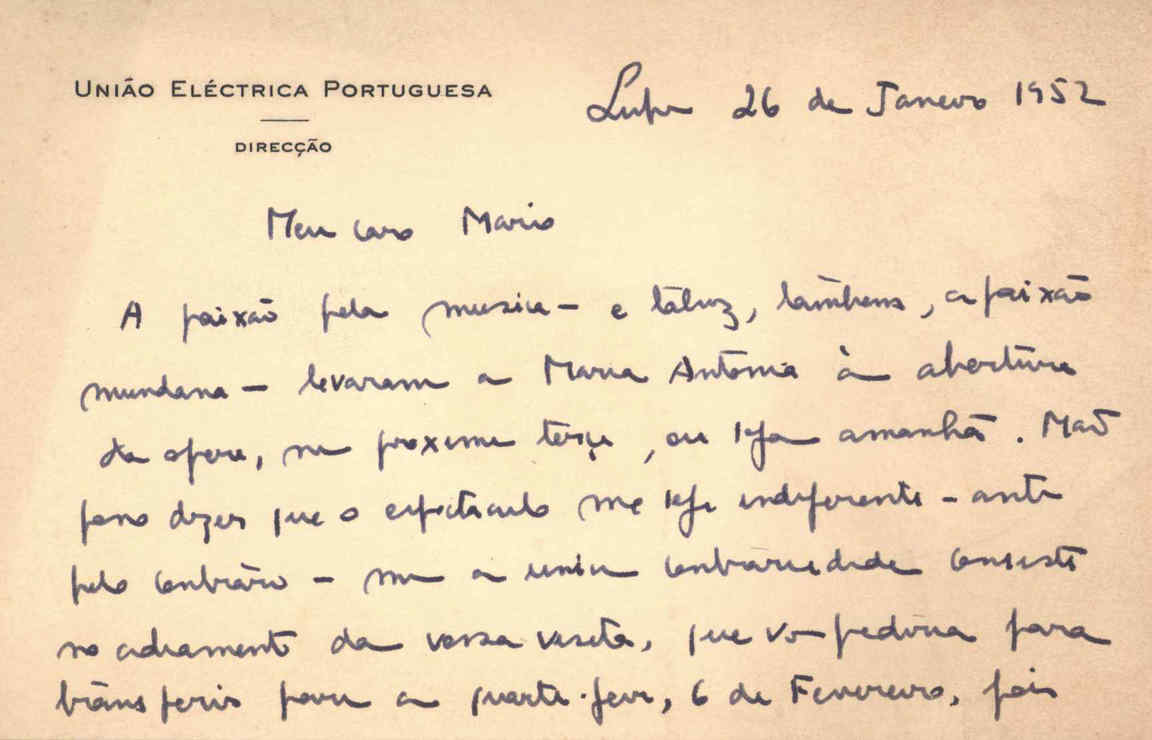 UNIÃO ELÉCTRICA PORTUGUESA
DIRECÇÃO
26 de Janeiro 1952
Meu caro Mario
A paixão pela musica – e talvez, também, a paixão
mundana – levaram a Maria Antonia à abertura
da opera, na proxima terça, ou seja amanhã. Não
posso dizer que o espectaculo me seja indiferente – ante
pelo contrário – mas a unica contrariedade consiste
no adiamento da vossa visita, que vos pediria para
transferir para a quarta-feira, 6 de Fevereiro, pois